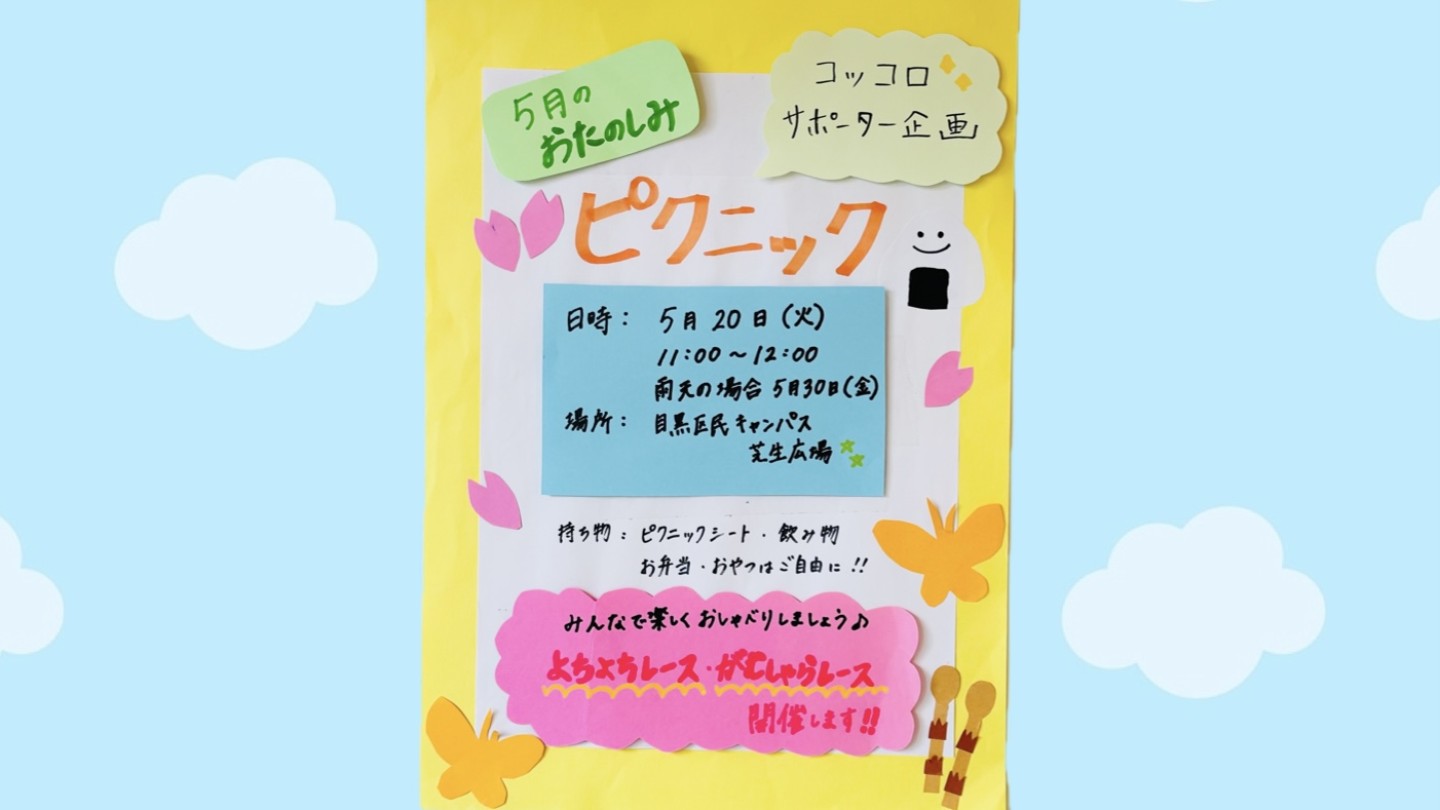 5月の
おたのしみ
コッコロ
サポーター企画
ピクニック
日時： 5月20日（火）
11:00〜12:00
雨天の場合 5月30日（金）
場所： 目黒区民キャンパス
芝生広場
持ち物：ピクニックシート・飲み物
お弁当・おやつはご自由に!!
みんなで楽しくおしゃべりしましょう♪
よちよちレース・がむしゃらレース
開催します!!